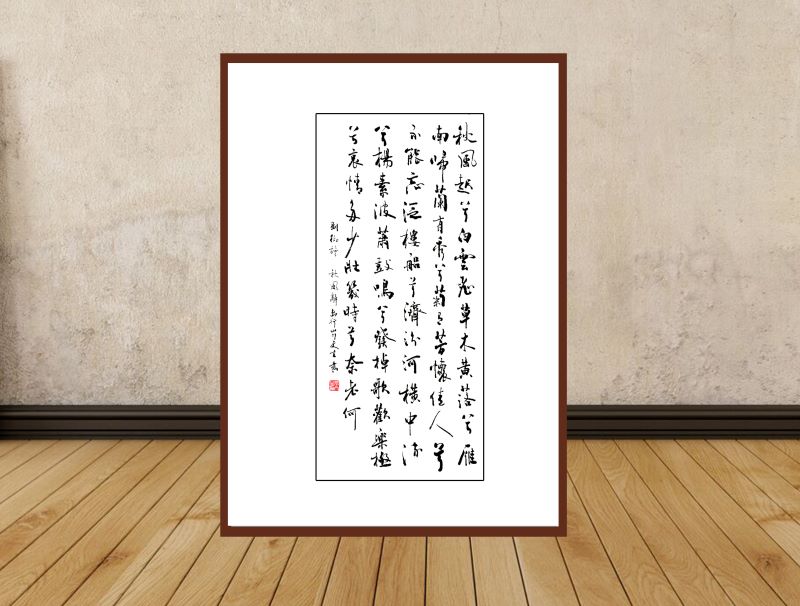 秋風起兮白雲飛草木黃落兮雁
南歸蘭有秀兮菊有芳懷佳人兮
不能忘泛樓船兮濟汾河橫中流
兮楊素波蕭鼓鳴兮發棹歌歡樂極
兮哀情多少壯幾時兮奈老何
劉徹詩 秋風辭 書